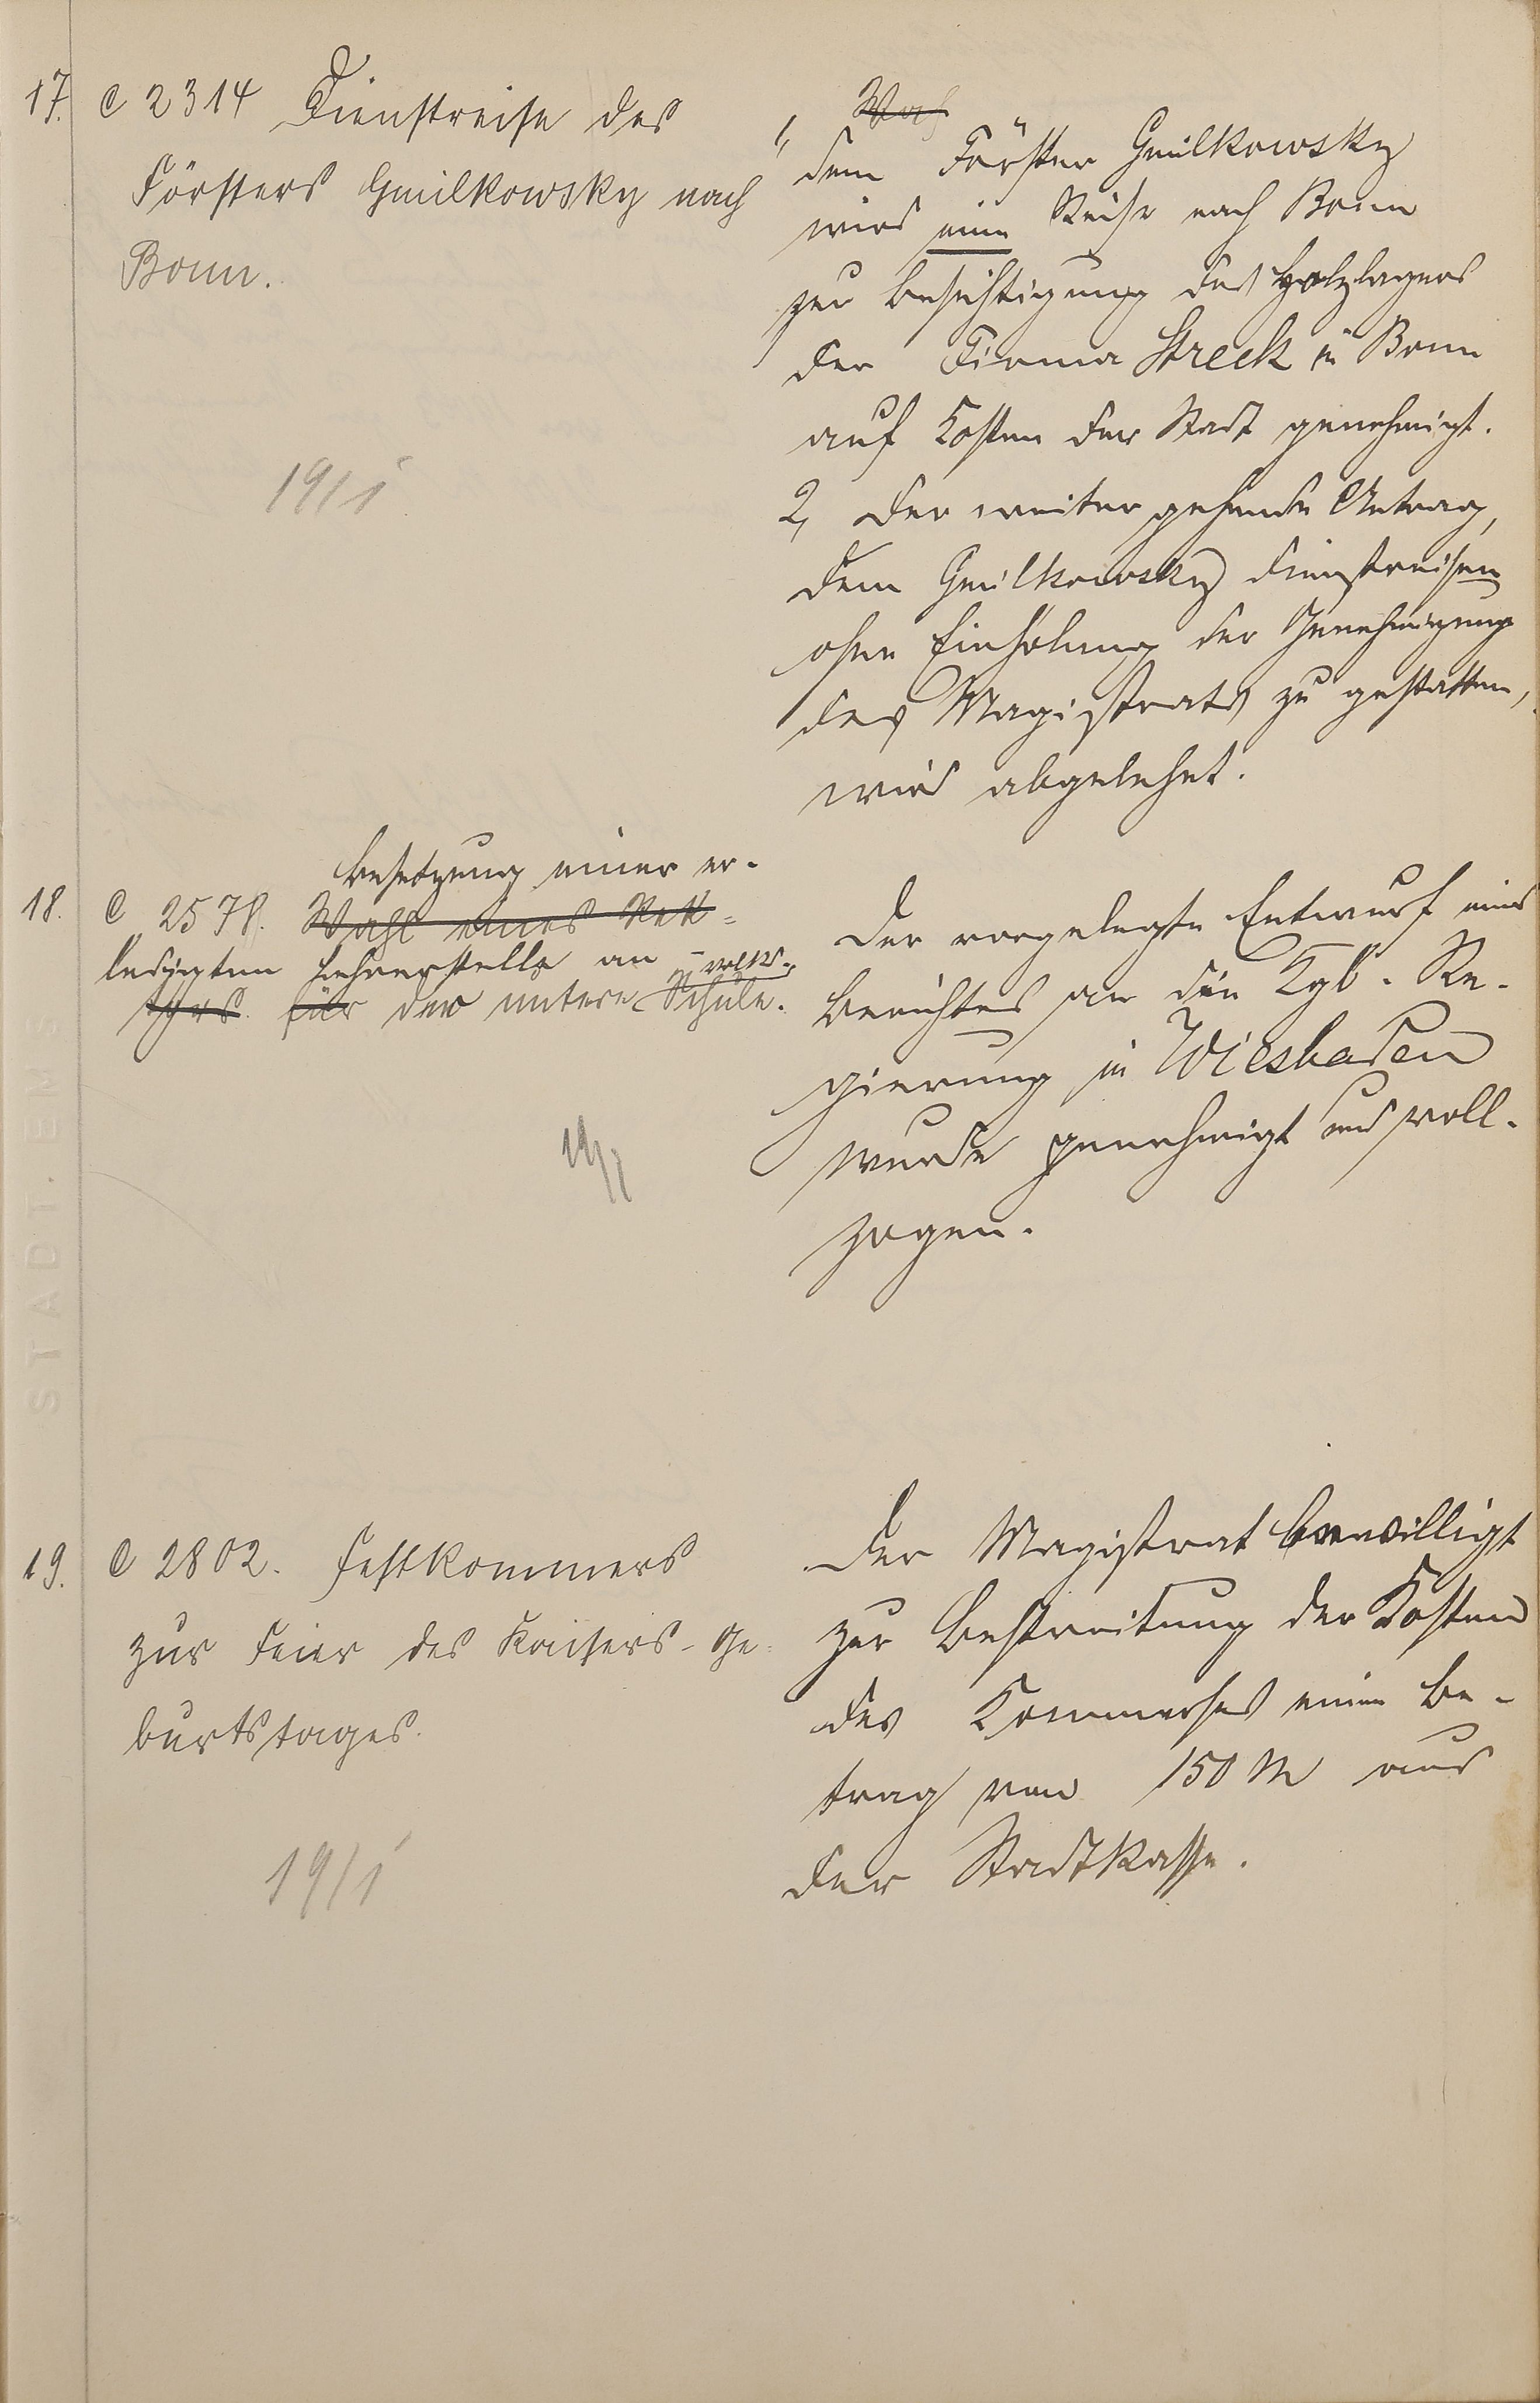 17. C 2314 Dienstreise des
Försters Gmilkowsky nach
Bonn.
19/1
Wah
1, dem Förster Gmilkowsky
wird eine Reise nach Bonn
zur Besichtigung des Holzlagers
der Firma Streck in Bonn
auf Kosten der Stadt genehmigt.
2, Der weiter gehende Antrag,
dem Gmilkowsky Dienstreisen
ohne Einholung der Genehmigung
des Magistrats zu gestatten,
wird abgelehnt.
Besetzung einer er-
18. C 2578. Wahl eines Rek-
ledigten Lehrerstelle an - volks-
tors für der untere Schule.
19/1
Der vorgelegte Entwurf eines
Berichtes an die Kgl. Re-
gierung in Wiesbaden
wurde genehmigt und voll-
zogen.
19. C 2802. Festkommers
zur Feier des Kaisers-Ge-
burtstages.
19/1
Der Magistrat bewilligt
zur Bestreitung der Kosten
des Kommerses einen Be-
trag von 150 M aus
der Stadtkasse.
STADT. EMS